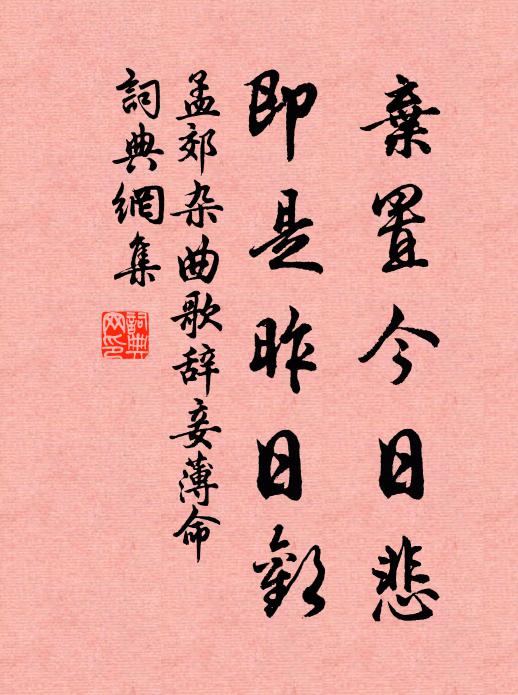 棄置今日悲
即是昨日歡
孟郊杂曲歌辞妾薄命
詞典網集
詞典网印